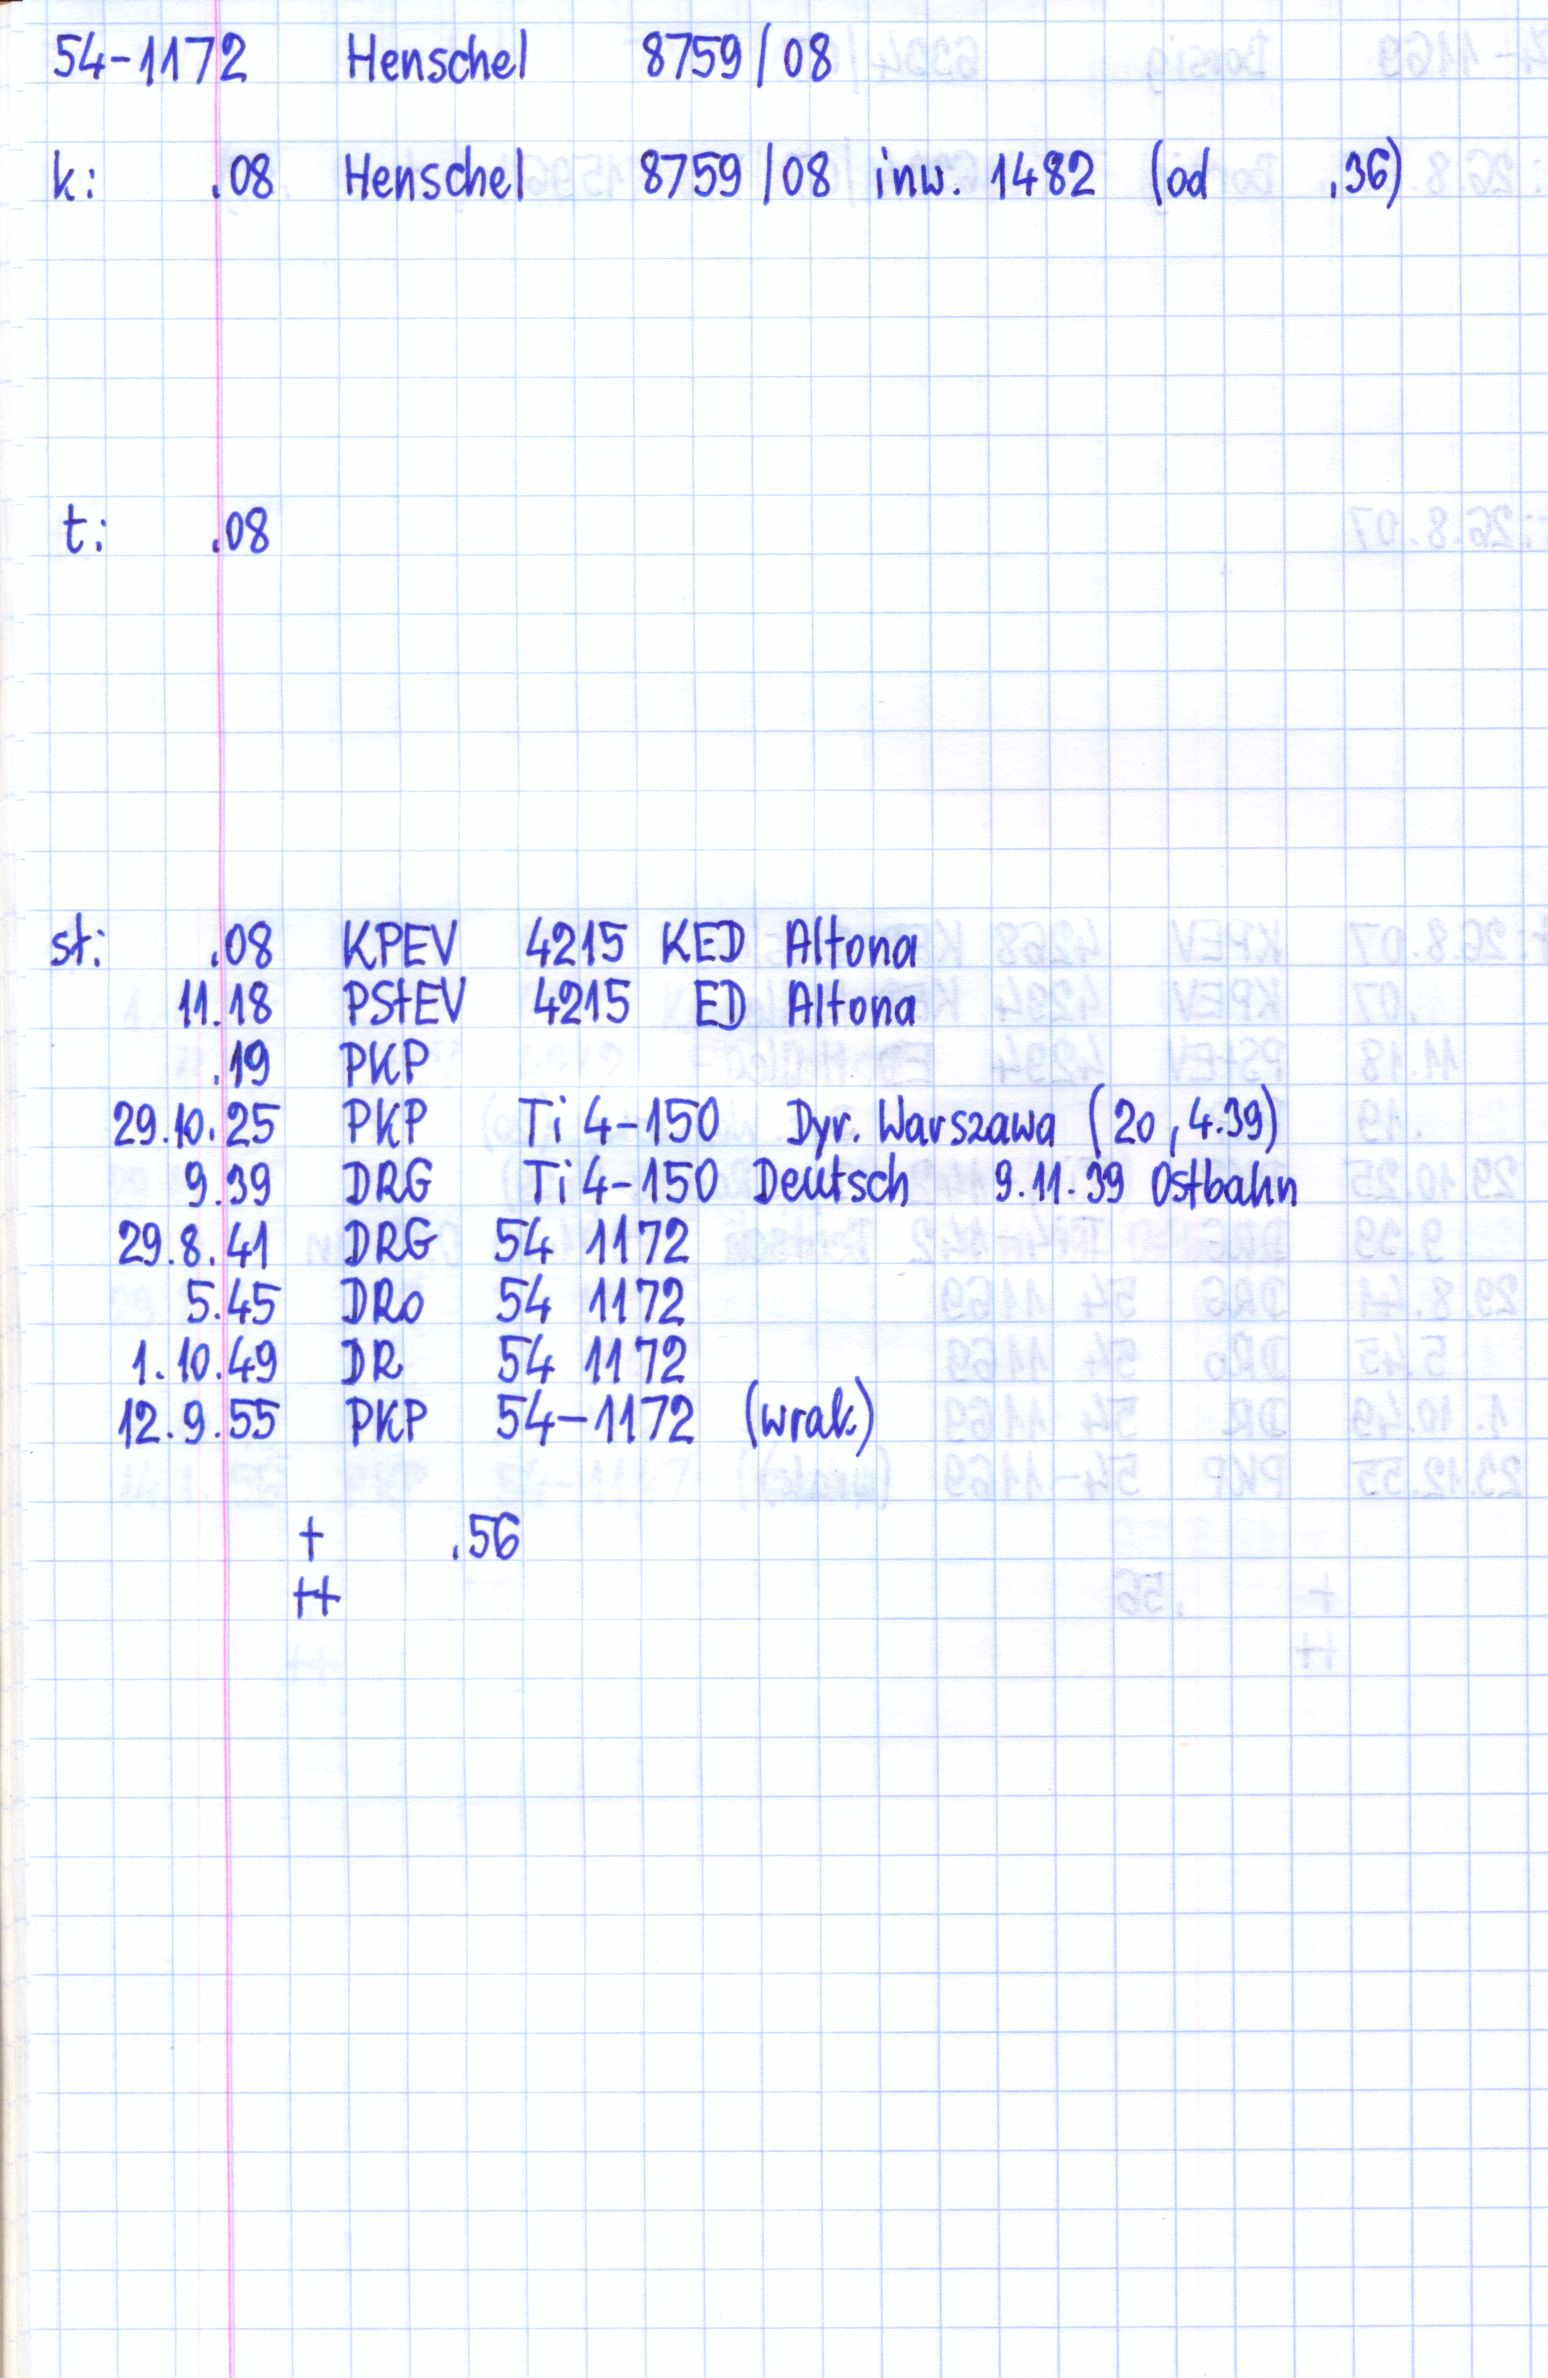 54-1172 Henschel 8759/08
k: .08 Henschel 8759/08 inw. 1482 (od .36)
t: .08
st: .08 KPEV 4215 KED Altona
11.18 PStEV 4215 ED Altona
.19 PKP
29.10.25 PKP Ti4-150 Dyr. Warszawa (20,4.39)
9.39 DRG Ti4-150 Deutsch 9.11.39 Ostbahn
29.8.41 DRG 54 1172
5.45 DRo 54 1172
1.10.49 DR 54 1172
12.9.55 PKP 54-1172 (wrak)
+ .56
++